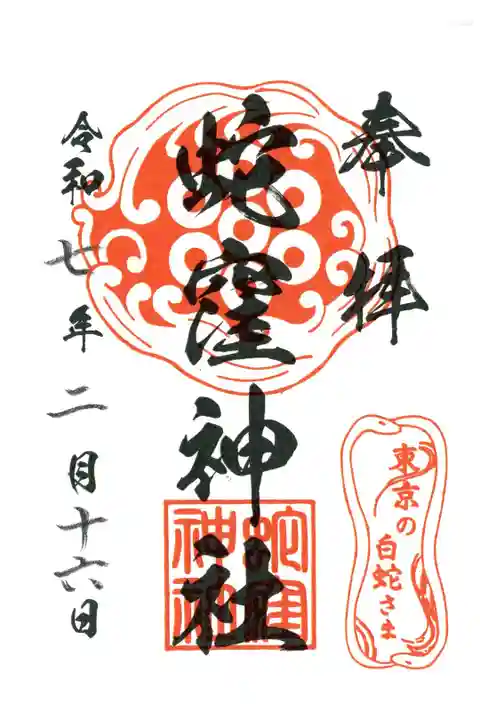 奉拝
蛇窪神社
蛇窪
神社
令和七年二月十六日
東京の
白蛇さま